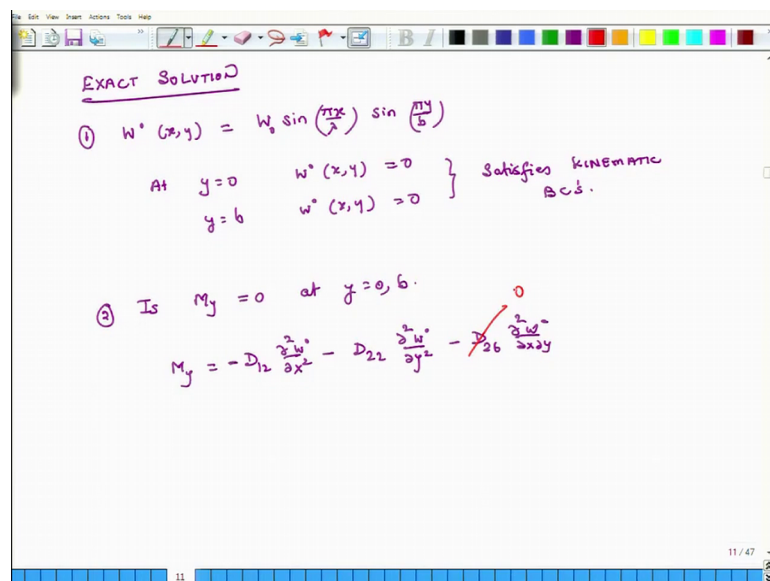 File Edit View Insert Actions Tools Help
EXACT SOLUTION
① W° (x,y) = W₀ sin (πx/λ) sin (πy/b)
At y=0 W° (x,y) =0
y=b W° (x,y) =0
} Satisfies KINEMATIC
BCs.
② Is My =0 at y=0, b.
0
My = -D₁₂ ∂²W°/∂x² - D₂₂ ∂²W°/∂y² - D₂₆ ∂²W°/∂x∂y
11 / 47
11